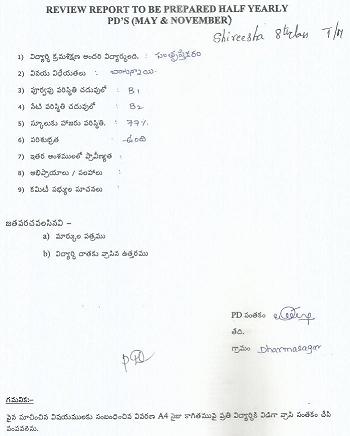 REVIEW REPORT TO BE PREPARED HALF YEARLY
PD'S (MAY & NOVEMBER)
Shireesha 8th class T/M
1) విద్యార్థి క్రమశిక్షణ అందరి విద్యార్థులది. :
2) వినయ విధేయతలు :
3) పూర్వపు పరిస్థితి చదువులో : B1
4) నేటి పరిస్థితి చదువులో : B2
5) స్కూలుకు హాజరు పరిస్థితి. : 77%
6) పరిశుభ్రత : ఉంది
7) ఇతర అంశములలో ప్రావీణ్యత :
8) అభిప్రాయాలు / సలహాలు :
9) కమిటీ సభ్యుల సూచనలు :
జతపరచవలసినవి –
a) మార్కుల పత్రము
b) విద్యార్థి దాతకు వ్రాసిన ఉత్తరము
PD సంతకం
తేది.
గ్రామం Dharmasagar
గమనిక:-
పైన సూచించిన విషయములకు సంబంధించిన వివరణ A4 సైజు కాగితముపై ప్రతి విద్యార్థికి విడిగా వ్రాసి సంతకం చేసి
పంపవలెను.